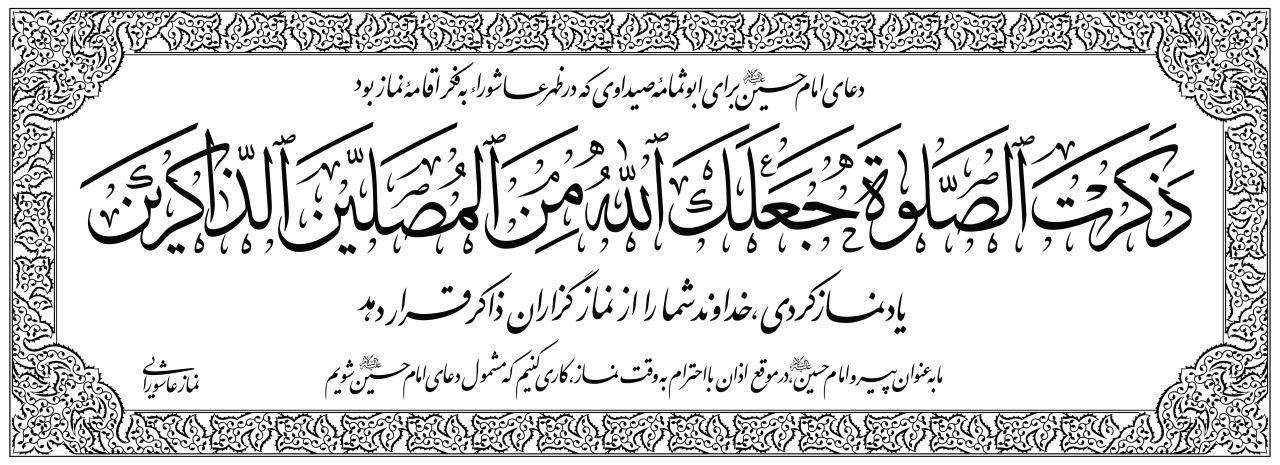 دعای امام حسین علیه‌السلام برای ابوثمامهٔ صیداوی که در ظهر عاشوراء به فکر اقامهٔ نماز بود
ذَكَرْتَ ٱلصَّلَوٰةَ جَعَلَكَ ٱللّٰهُ مِنَ ٱلْمُصَلِّينَ ٱلذَّاكِرِينَ
یاد نماز کردی، خداوند شما را از نماز گزاران ذاکر قرار دهد
ما به عنوان پیرو امام حسین علیه‌السلام، در موقع اذان با احترام به وقت نماز، کاری کنیم که مشمول دعای امام حسین علیه‌السلام شویم
نماز عاشورایی